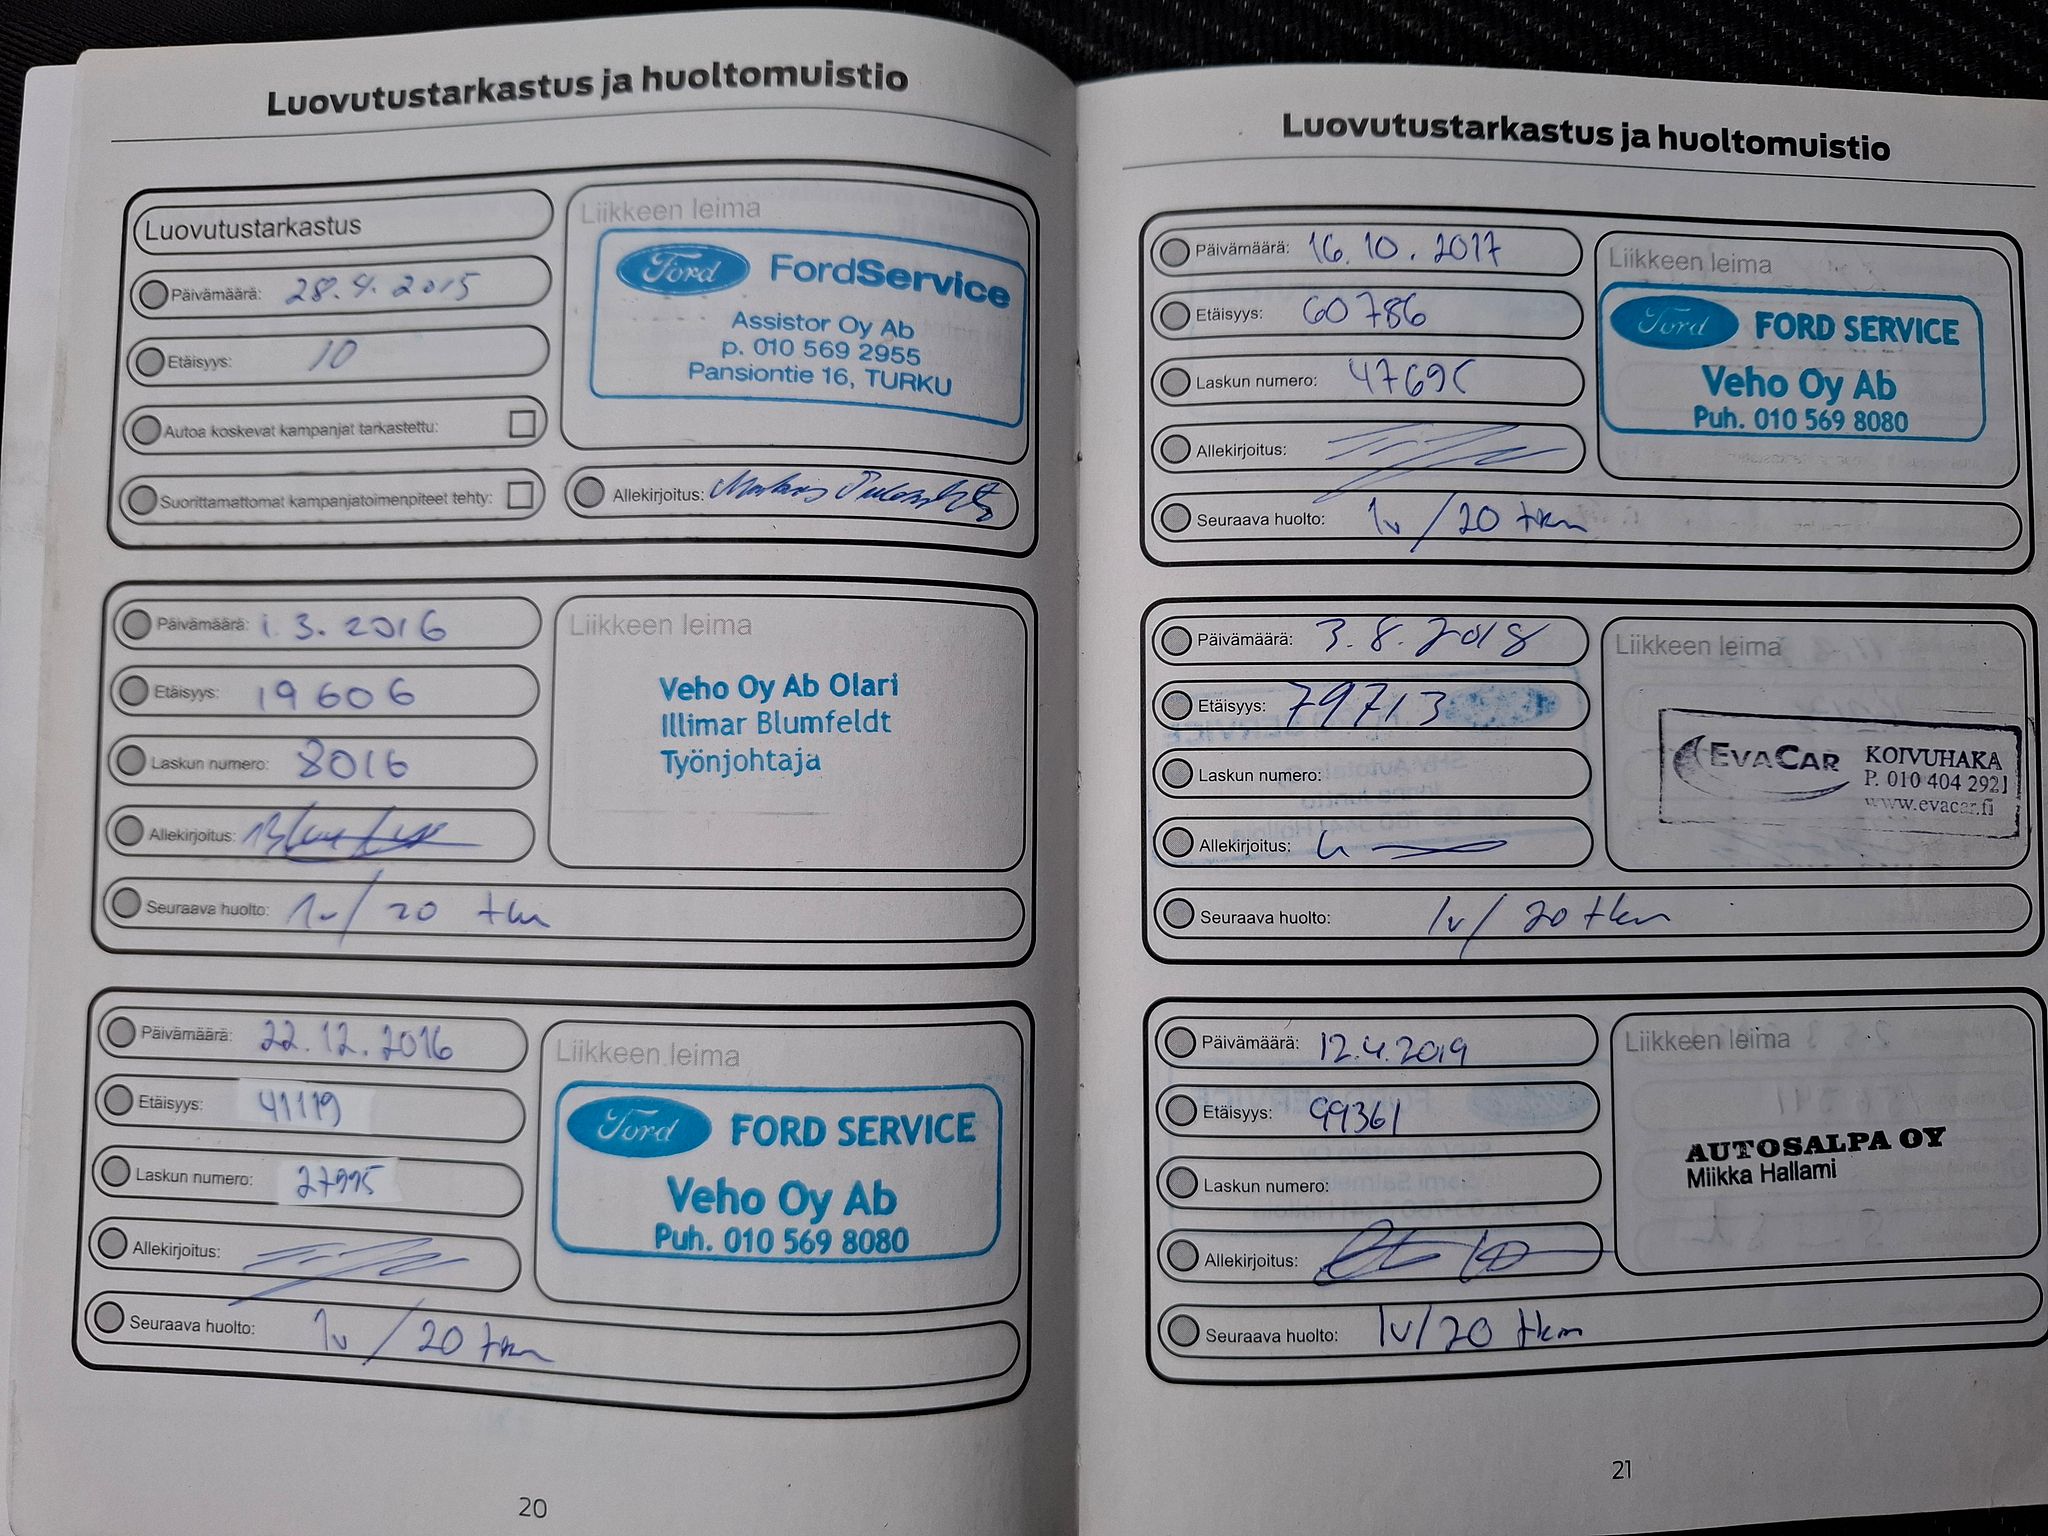 Luovutustarkastus ja huoltomuistio
Luovutustarkastus
Päivämäärä: 28.4.2015
Etäisyys: 10
Autoa koskevat kampanjat tarkastettu:
Suorittamattomat kampanjatoimenpiteet tehty:
Liikkeen leima
Ford FordService
Assistor Oy Ab
p. 010 569 2955
Pansiontie 16, TURKU
Allekirjoitus:
Päivämäärä: 1.3.2016
Etäisyys: 19606
Laskun numero: 8016
Allekirjoitus:
Seuraava huolto: 1v/20 tkm
Liikkeen leima
Veho Oy Ab Olari
Illimar Blumfeldt
Työnjohtaja
Päivämäärä: 22.12.2016
Etäisyys: 41119
Laskun numero:
Allekirjoitus:
Seuraava huolto: 1v/20 tkm
Liikkeen leima
Ford FORD SERVICE
Veho Oy Ab
Puh. 010 569 8080
20
Luovutustarkastus ja huoltomuistio
Päivämäärä: 16.10.2017
Etäisyys: 60786
Laskun numero:
Allekirjoitus:
Seuraava huolto: 1v/20 tkm
Liikkeen leima
Ford FORD SERVICE
Veho Oy Ab
Puh. 010 569 8080
Päivämäärä: 3.8.2018
Etäisyys: 79713
Laskun numero:
Allekirjoitus:
Seuraava huolto: 1v/20 tkm
Liikkeen leima
EVACAR KOIVUHAKA
P. 010 404 2921
www.evacar.fi
Päivämäärä: 12.4.2019
Etäisyys: 99361
Laskun numero:
Allekirjoitus:
Seuraava huolto: 1v/20 tkm
Liikkeen leima
AUTOSALPA OY
Miikka Hallami
21